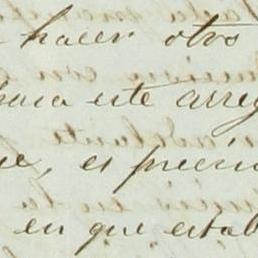 hacer otro
para este arreg
ue, es precis
en que estab